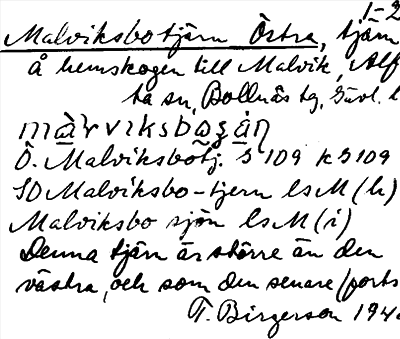 1-2
Malviksbotjärn Östra, tjärn
å hemskogen till Malvik, Alf
ta sn, Bollnäs tg, Gävl. l
Ö. Malviksbotj. S 109 k S 109
SO Malviksbo-tjern lsM (h)
Malviksbo sjön lsM (i)
Denna tjärn är större än den
västra, och som den senare (forts
T. Birgerson 194